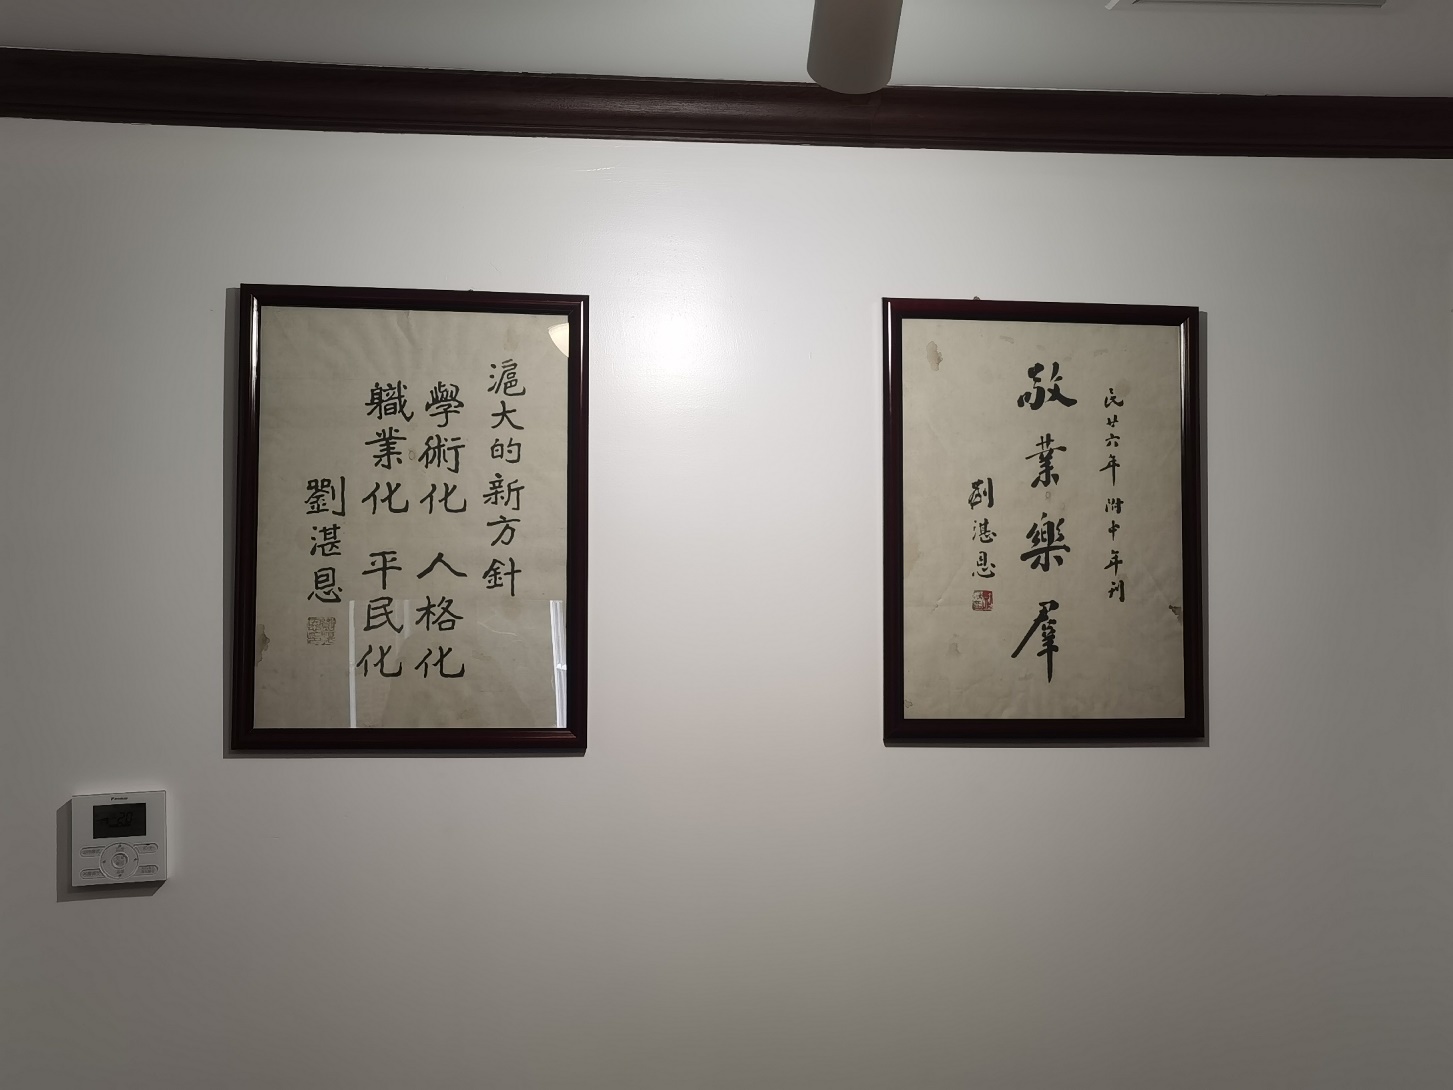 滬大的新方針
學術化 人格化
軄業化 平民化
劉湛恩
民廿六年 附中年刊
敬業樂羣
劉湛恩